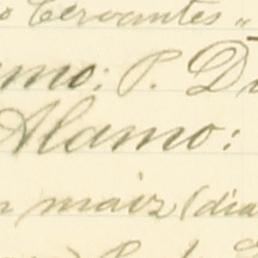 o Cervantes „
amo: P. D
Alamo:
n maiz (dia